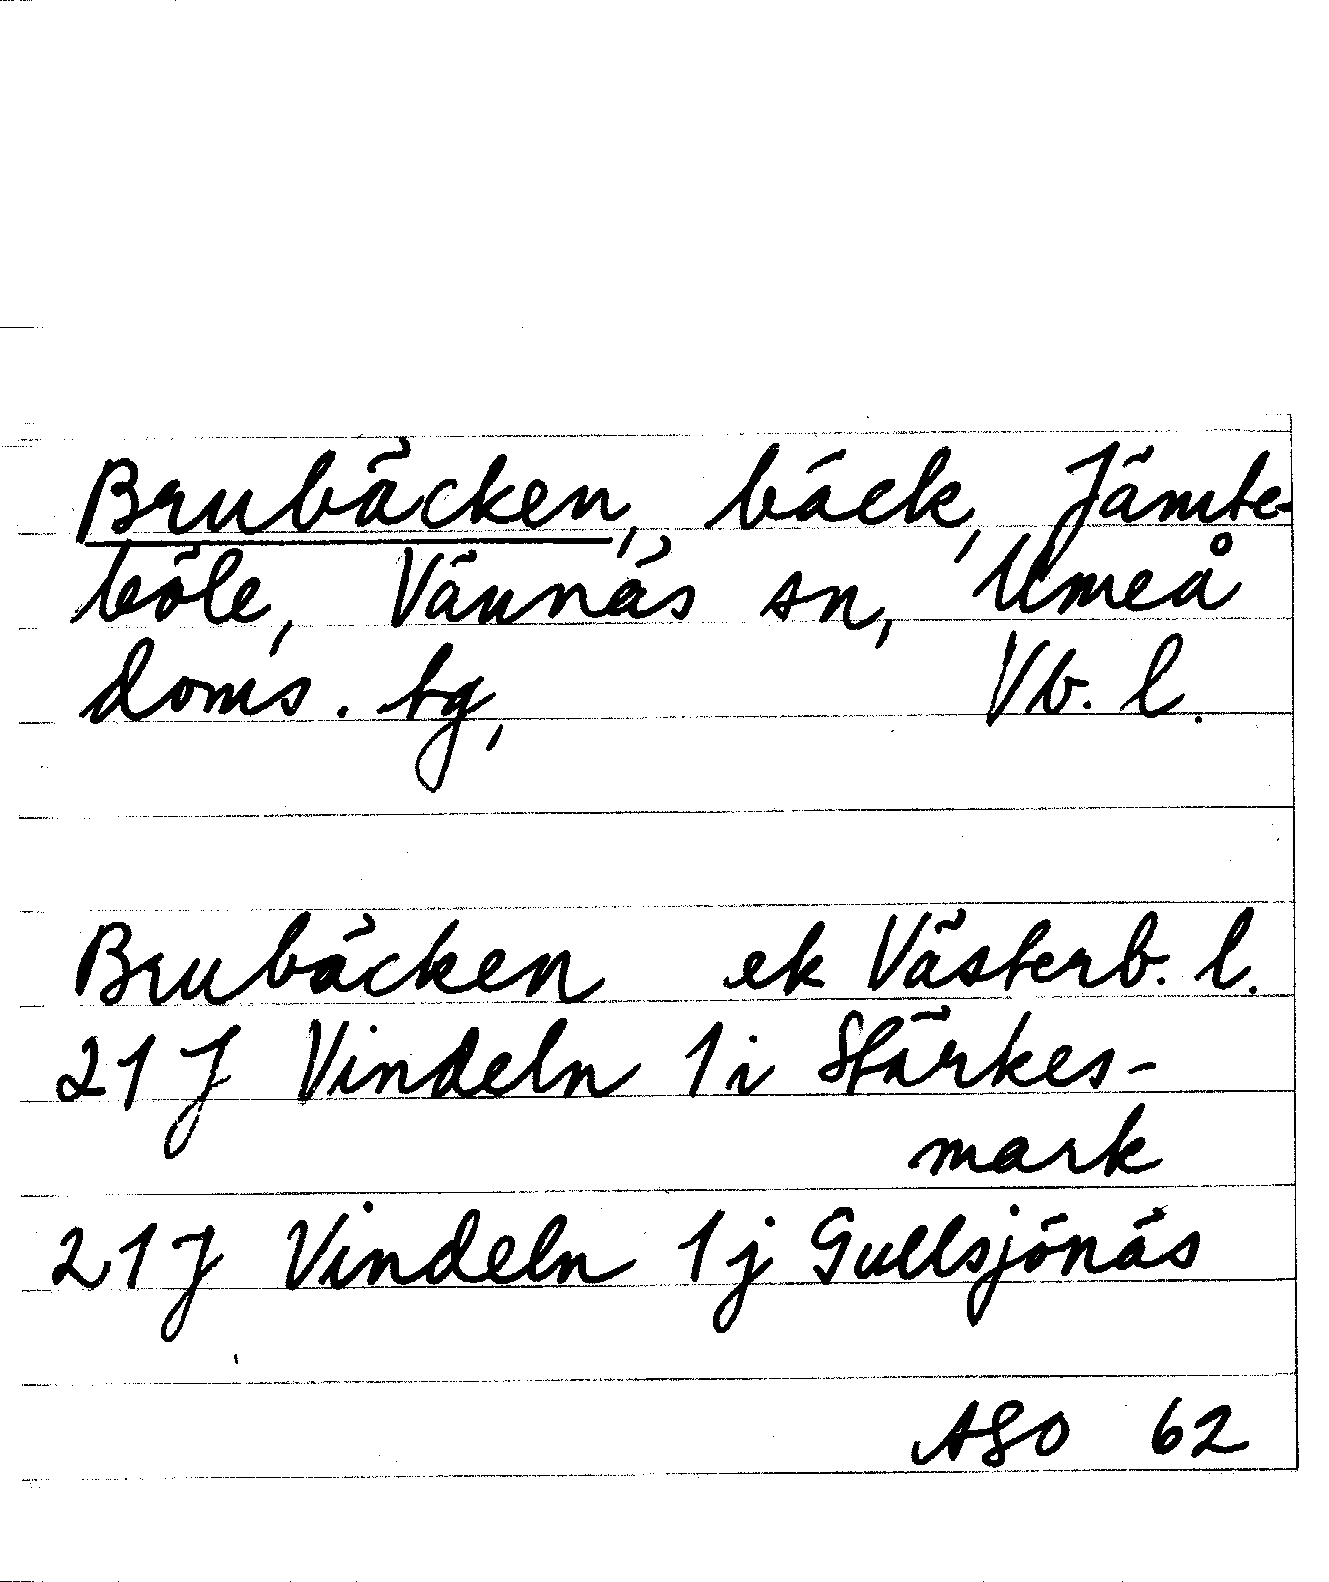 Brubäcken, bäck, Jämte-
böle, Vännäs sn, Umeå
doms. tg, Vb. l.
Brubäcken ek Västerb. l.
21 J Vindeln 1 i Stärkes-
mark
21 J Vindeln 1 j Gullsjönäs
ASO 62